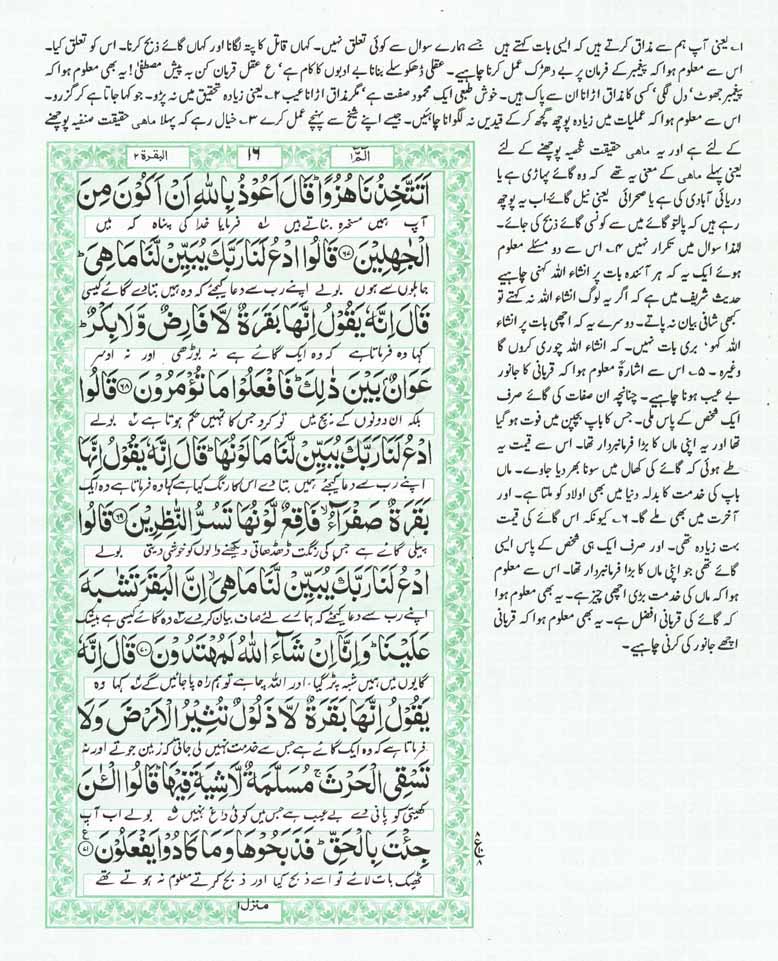 ۱۔ یعنی آپ ہم سے مذاق کرتے ہیں کہ ایسی بات کہتے ہیں جسے ہمارے سوال سے کوئی تعلق نہیں۔ کہاں قاتل کا پتہ لگانا اور کہاں گائے ذبح کرنا۔ اس کو تعلق کیا۔
اس سے معلوم ہوا کہ پیغمبر کے فرمان پر بے دھڑک عمل کرنا چاہیے۔ عقلی ڈھکوسلے بنانا بے ادبوں کا کام ہے، ع عقل قربان کن بہ پیش مصطفیٰ! یہ بھی معلوم ہوا کہ
پیغمبر جھوٹ، دل لگی، کسی کا مذاق اڑانا ان سے پاک ہیں۔ خوش طبعی ایک محمود صفت ہے، مگر مذاق اڑانا عیب ۲۔ یعنی زیادہ تحقیق میں نہ پڑو۔ جو کہا جاتا ہے کر گزرو۔
اس سے معلوم ہوا کہ عملیات میں زیادہ پوچھ گچھ کر کے قیدیں نہ لگوانا چاہئیں۔ جیسے اپنے شیخ سے پہنچے عمل کرے ۳۔ خیال رہے کہ پہلا ماھی حقیقت صنفیہ پوچھنے
کے لئے ہے اور یہ ماھی حقیقت شخصیہ پوچھنے کے لئے
یعنی پہلے ماھی کے معنی یہ تھے کہ وہ گائے پہاڑی ہے یا
دریائی آبادی کی ہے یا صحرائی یعنی نیل گائے۔ اب یہ پوچھ
رہے ہیں کہ پالتو گائے میں سے کونسی گائے ذبح کی جائے۔
لہذا سوال میں تکرار نہیں ۴۔ اس سے دو مسئلے معلوم
ہوئے ایک یہ کہ ہر آئندہ بات پر انشاء اللہ کہنی چاہیے
حدیث شریف میں ہے کہ اگر یہ لوگ انشاء اللہ نہ کہتے تو
کبھی شافی بیان نہ پاتے۔ دوسرے یہ کہ اچھی بات پر انشاء
اللہ کہو، بری بات نہیں۔ کہ انشاء اللہ چوری کروں گا
وغیرہ ۔ ۵۔ اس سے اشارۃً معلوم ہوا کہ قربانی کا جانور
بے عیب ہونا چاہیے۔ چنانچہ ان صفات کی گائے صرف
ایک شخص کے پاس ملی۔ جس کا باپ بچپن میں فوت ہو گیا
تھا اور یہ اپنی ماں کا بڑا فرمانبردار تھا۔ اس سے قیمت یہ
طے ہوئی کہ گائے کی کھال میں سونا بھر دیا جاوے۔ ماں
باپ کی خدمت کا بدلہ دنیا میں بھی اولاد کو ملتا ہے۔ اور
آخرت میں بھی ملے گا۔ ۶۔ کیونکہ اس گائے کی قیمت
بہت زیادہ تھی۔ اور صرف ایک ہی شخص کے پاس ایسی
گائے تھی جو اپنی ماں کا بڑا فرمانبردار تھا۔ اس سے معلوم
ہوا کہ ماں کی خدمت بڑی اچھی چیز ہے۔ یہ بھی معلوم ہوا
کہ گائے کی قربانی افضل ہے۔ یہ بھی معلوم ہوا کہ قربانی
اچھے جانور کی کرنی چاہیے۔
الٓمّٓ۱ ۱۶ البقرة ۲
اَتَتَّخِذُنَا هُزُوًاؕ قَالَ اَعُوْذُ بِاللّٰهِ اَنْ اَكُوْنَ مِنَ
آپ ہمیں مسخرہ بناتے ہیں ۱؎ فرمایا خدا کی پناہ کہ میں
الْجٰهِلِيْنَ﴿۶۷﴾ قَالُوا ادْعُ لَنَا رَبَّكَ يُبَيِّنْ لَّنَا مَا هِيَؕ
جاہلوں سے ہوں بولے اپنے رب سے دعا کیجئے کہ وہ ہمیں بتا دے گائے کیسی
قَالَ اِنَّهٗ يَقُوْلُ اِنَّهَا بَقَرَةٌ لَّا فَارِضٌ وَّلَا بِكْرٌؕ
کہا وہ فرماتا ہے کہ وہ ایک گائے ہے نہ بوڑھی اور نہ اوسر
عَوَانٌۢ بَيْنَ ذٰلِكَؕ فَافْعَلُوْا مَا تُؤْمَرُوْنَ﴿۶۸﴾ قَالُوا
بلکہ ان دونوں کے بیچ میں تو کرو جس کا تمہیں حکم ہوتا ہے ۲؎ بولے
ادْعُ لَنَا رَبَّكَ يُبَيِّنْ لَّنَا مَا لَوْنُهَاؕ قَالَ اِنَّهٗ يَقُوْلُ اِنَّهَا
اپنے رب سے دعا کیجئے ہمیں بتا دے اس کا رنگ کیا ہے کہا وہ فرماتا ہے وہ ایک
بَقَرَةٌ صَفْرَآءُۙ فَاقِعٌ لَّوْنُهَا تَسُرُّ النّٰظِرِيْنَ﴿۶۹﴾ قَالُوا
پیلی گائے ہے جس کی رنگت ڈھڈھاتی دیکھنے والوں کو خوشی دیتی بولے
ادْعُ لَنَا رَبَّكَ يُبَيِّنْ لَّنَا مَا هِيَۙ اِنَّ الْبَقَرَ تَشٰبَهَ
اپنے رب سے دعا کیجئے کہ ہمارے لئے صاف بیان کردے ۳؎ وہ گائے کیسی ہے بیشک
عَلَيْنَاؕ وَاِنَّآ اِنْ شَآءَ اللّٰهُ لَمُهْتَدُوْنَ﴿۷۰﴾ قَالَ اِنَّهٗ
گایوں میں ہمیں شبہ پڑ گیا اور اللہ چاہے تو ہم راہ پا جائیں گے ۴؎ کہا وہ
يَقُوْلُ اِنَّهَا بَقَرَةٌ لَّا ذَلُوْلٌ تُثِيْرُ الْاَرْضَ وَلَا
فرماتا ہے کہ وہ ایک گائے ہے جس سے خدمت نہیں لی جاتی کہ زمین جوتے اور نہ
تَسْقِى الْحَرْثَۚ مُسَلَّمَةٌ لَّا شِيَةَ فِيْهَاؕ قَالُوا الْـٰٔنَ
کھیتی کو پانی دے بے عیب ہے جس میں کوئی داغ نہیں ۵؎ بولے اب آپ
جِئْتَ بِالْحَقِّؕ فَذَبَحُوْهَا وَمَا كَادُوْا يَفْعَلُوْنَ﴿۷۱﴾
ٹھیک بات لائے تو اسے ذبح کیا اور ذبح کرتے معلوم نہ ہوتے تھے
منزل ۱